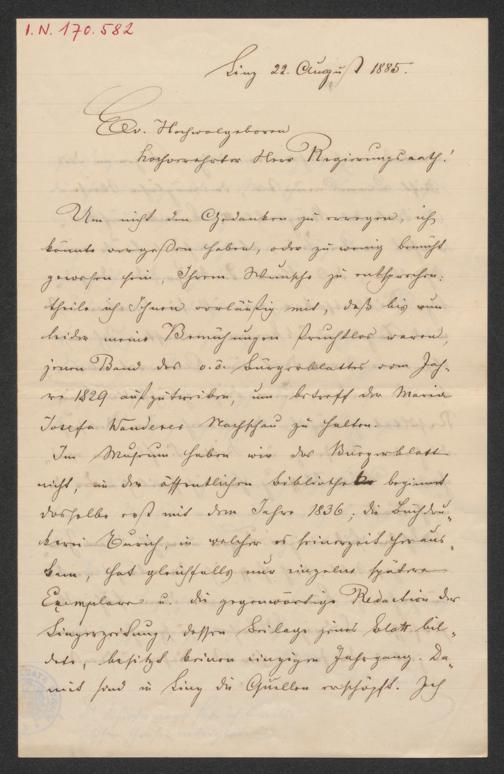 I.N. 170.582
Linz 22. August 1885.
Ew. Hochwolgeboren
hochverehrter Herr Regierungsrath!
Um nicht den Gedanken zu erregen, ich
könnte vergeßen haben, oder zu wenig bemüht
gewesen sein, Ihrem Wunsche zu entsprechen,
theile ich Ihnen vorläufig mit, daß bis nun
leider meine Bemühungen fruchtlos waren,
jenen Band des o.ö. Bürgerblattes vom Jah-
re 1829 aufzutreiben, um betreff der Maria
Josefa Nachschau zu halten.
Im Museum haben wir das Bürgerblatt
nicht, in der öffentlichen Bibliothek beginnt
dasselbe erst mit dem Jahre 1836; die Buchdru-
ckerei Eurich, in welcher es seinerzeit heraus-
kam, hat gleichfalls nur einzelne spätere
Exemplare u. die gegenwärtige Redaction der
Linzerzeitung, dessen Beilage jenes Blatt bil-
dete, besitzt keinen einzigen Jahrgang. Da-
mit sind in Linz die Quellen erschöpft. Ich